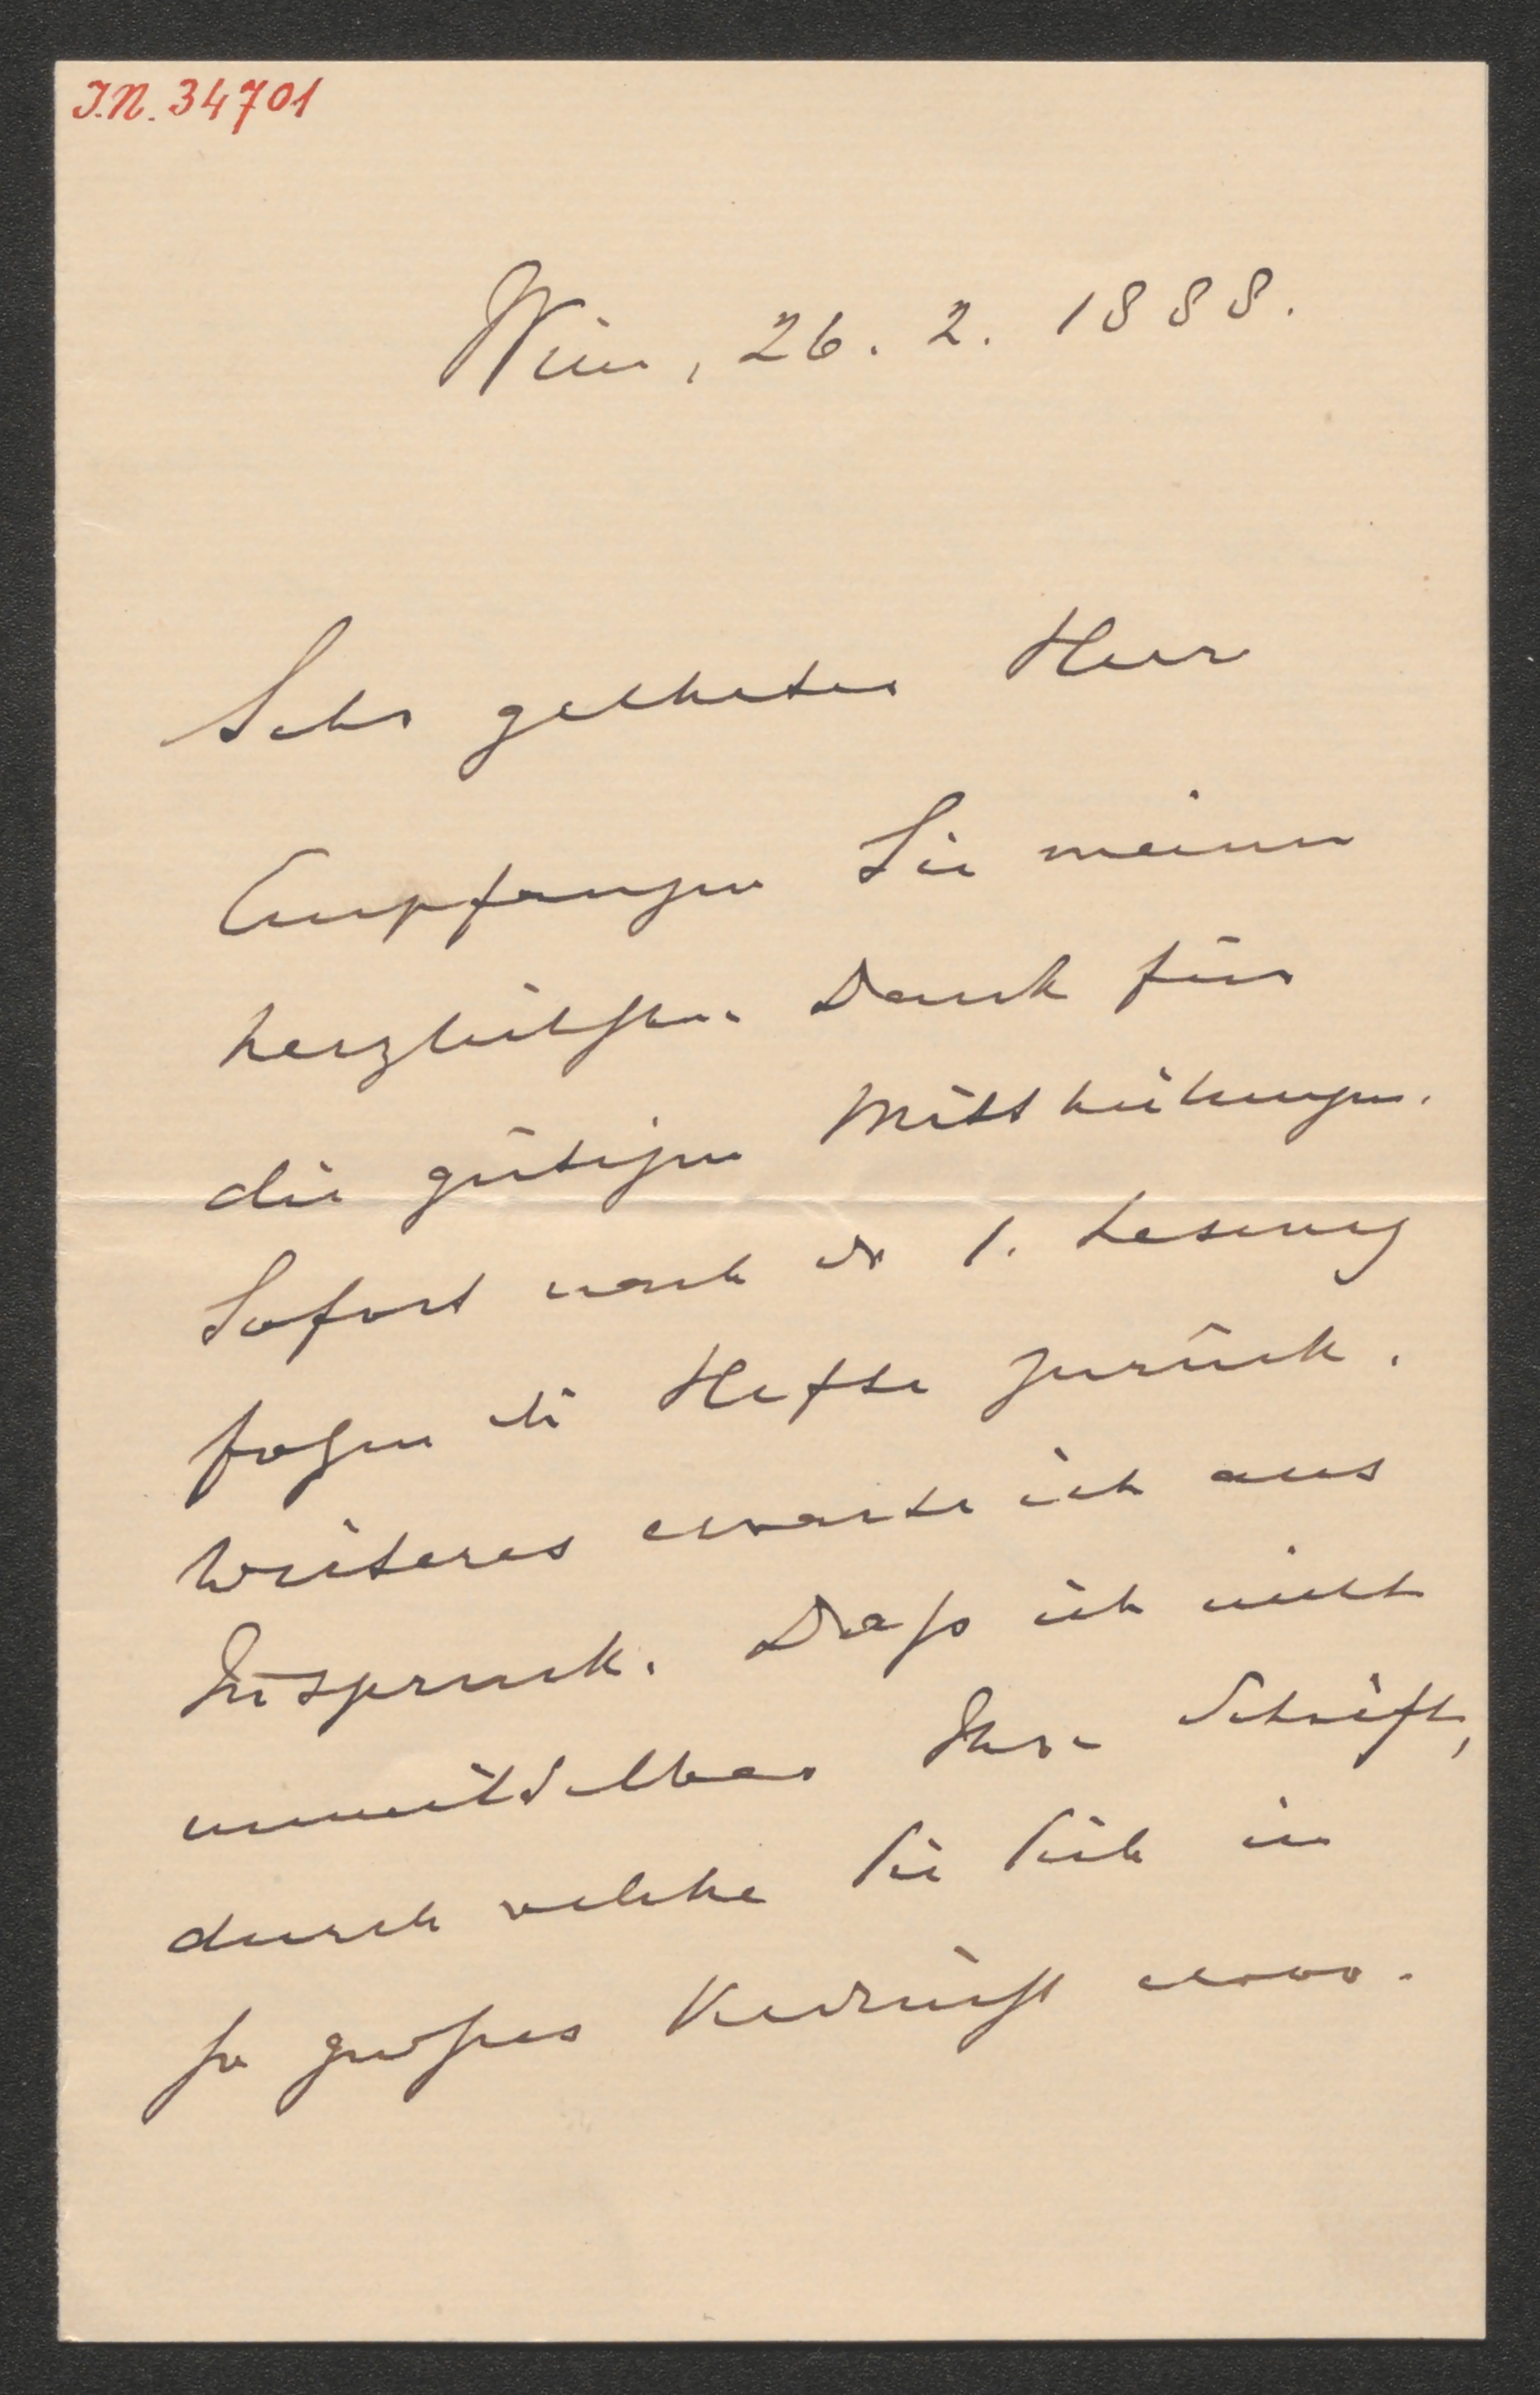 I.N. 34701
Wien, 26. 2. 1888.
Sehr geehrter Herr
Empfangen Sie meinen
herzlichsten Dank für
die gütigen Mittheilungen.
Sofort nach der 1. Lesung
folgen die Hefte zurück.
Weiteres erwarte ich aus
Inspruck. Daß ich nicht
unmittelbar Ihre Schrift,
durch welche Sie Sich ein
so großes Verdienst erwor-